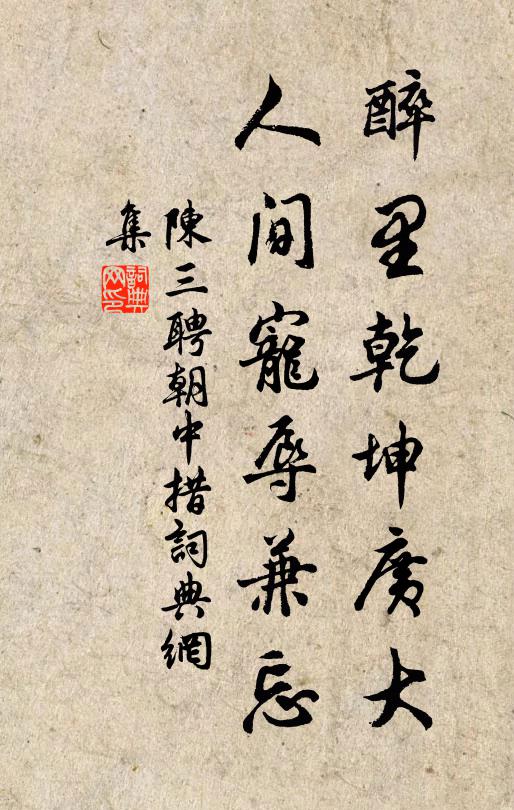 醉里乾坤廣大
人间寵辱兼忘
陳三聘朝中措詞典網
集
詞典网印